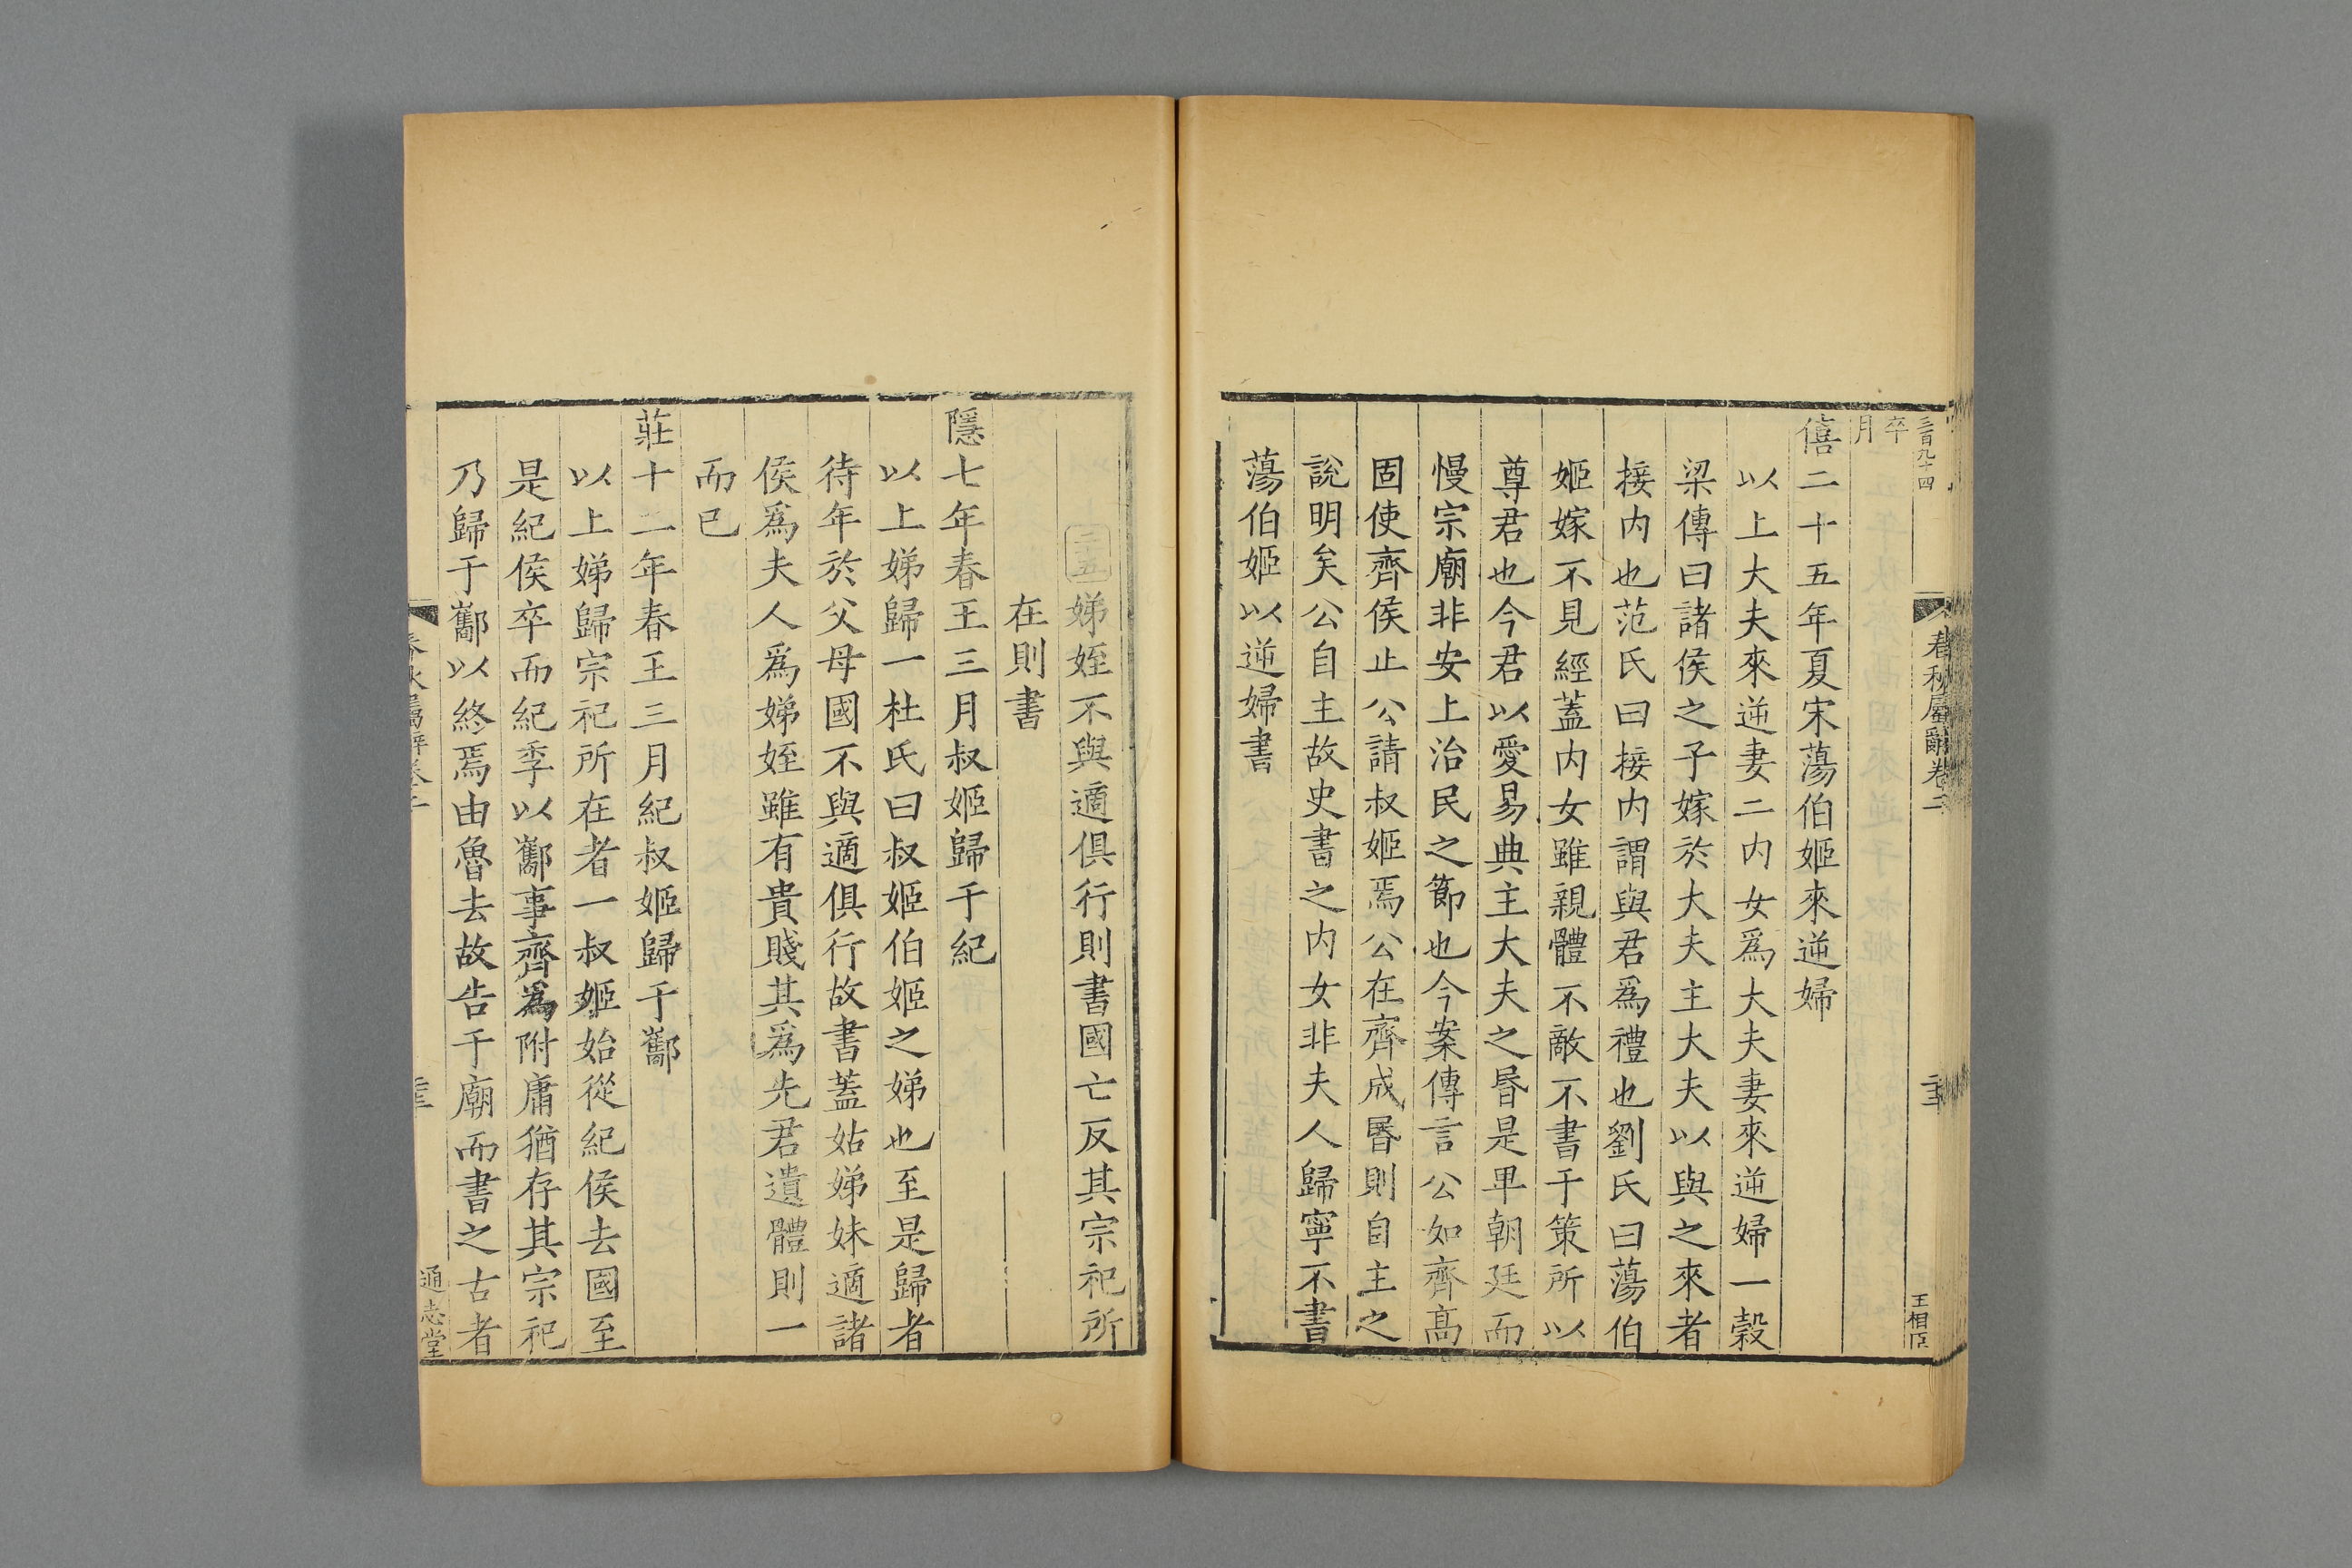 三百九十四
春秋屬辭卷二
王相臣
卒
月
僖二十五年夏宋蕩伯姬來逆婦
以上大夫來逆妻二内女爲大夫妻來逆婦一穀
梁傳曰諸侯之子嫁於大夫主大夫以與之來者
接内也范氏曰接内謂與君爲禮也劉氏曰蕩伯
姬嫁不見經蓋内女雖親體不敵不書于策所以
尊君也今君以愛易典主大夫之昏是卑朝廷而
慢宗廟非安上治民之節也今案傳言公如齊高
固使齊侯止公請叔姬焉公在齊成昏則自主之
說明矣公自主故史書之内女非夫人歸寧不書
蕩伯姬以逆婦書
二五娣姪不與適俱行則書國亡反其宗祀所
在則書
隱七年春王三月叔姬歸于紀
以上娣歸一杜氏曰叔姬伯姬之娣也至是歸者
待年於父母國不與適俱行故書蓋姑娣妹適諸
侯爲夫人爲娣姪雖有貴賤其爲先君遺體則一
而已
莊十二年春王三月紀叔姬歸于酅
以上娣歸宗祀所在者一叔姬始從紀侯去國至
是紀侯卒而紀季以酅事齊爲附庸猶存其宗祀
乃歸于酅以終焉由魯去故告于廟而書之古者
春秋屬辭卷二
通志堂